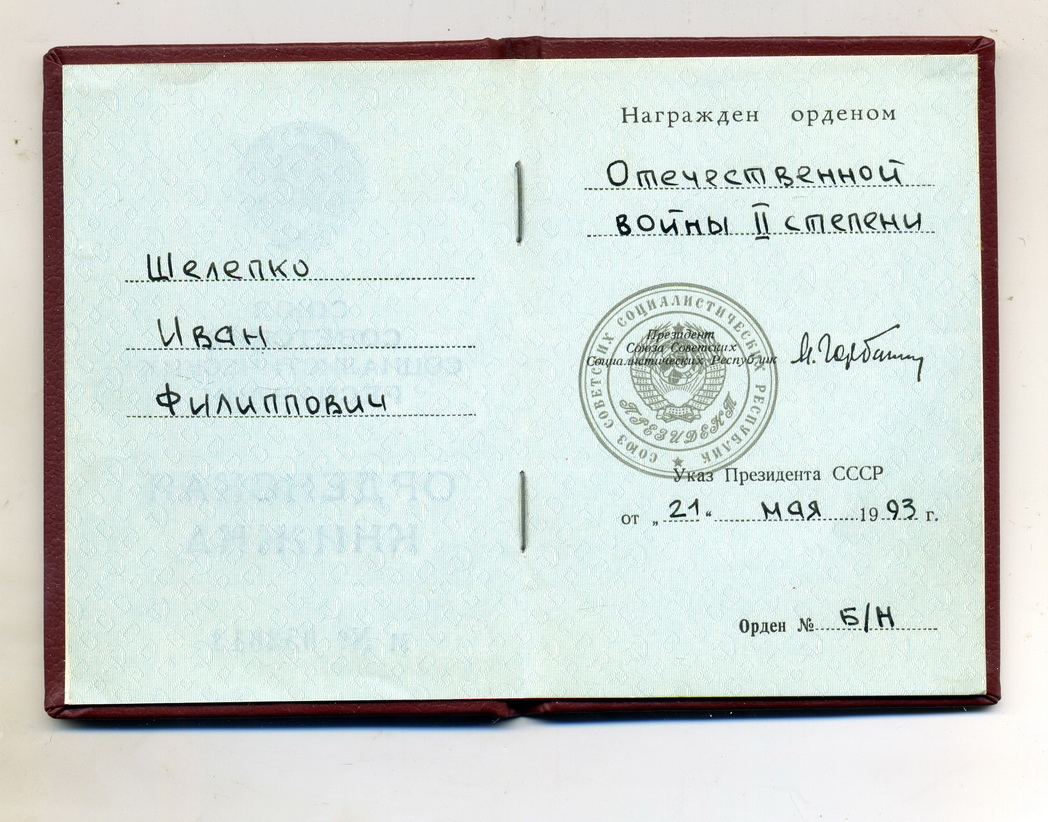 Шелепко
Иван
Филиппович
Награжден орденом
Отечественной
войны II степени
СОЮЗ СОВЕТСКИХ СОЦИАЛИСТИЧЕСКИХ РЕСПУБЛИК
Президент
Союза Советских
Социалистических Республик
ПРЕЗИДЕНТ
Указ Президента СССР
от „21“ мая 1993 г.
Орден № Б/Н